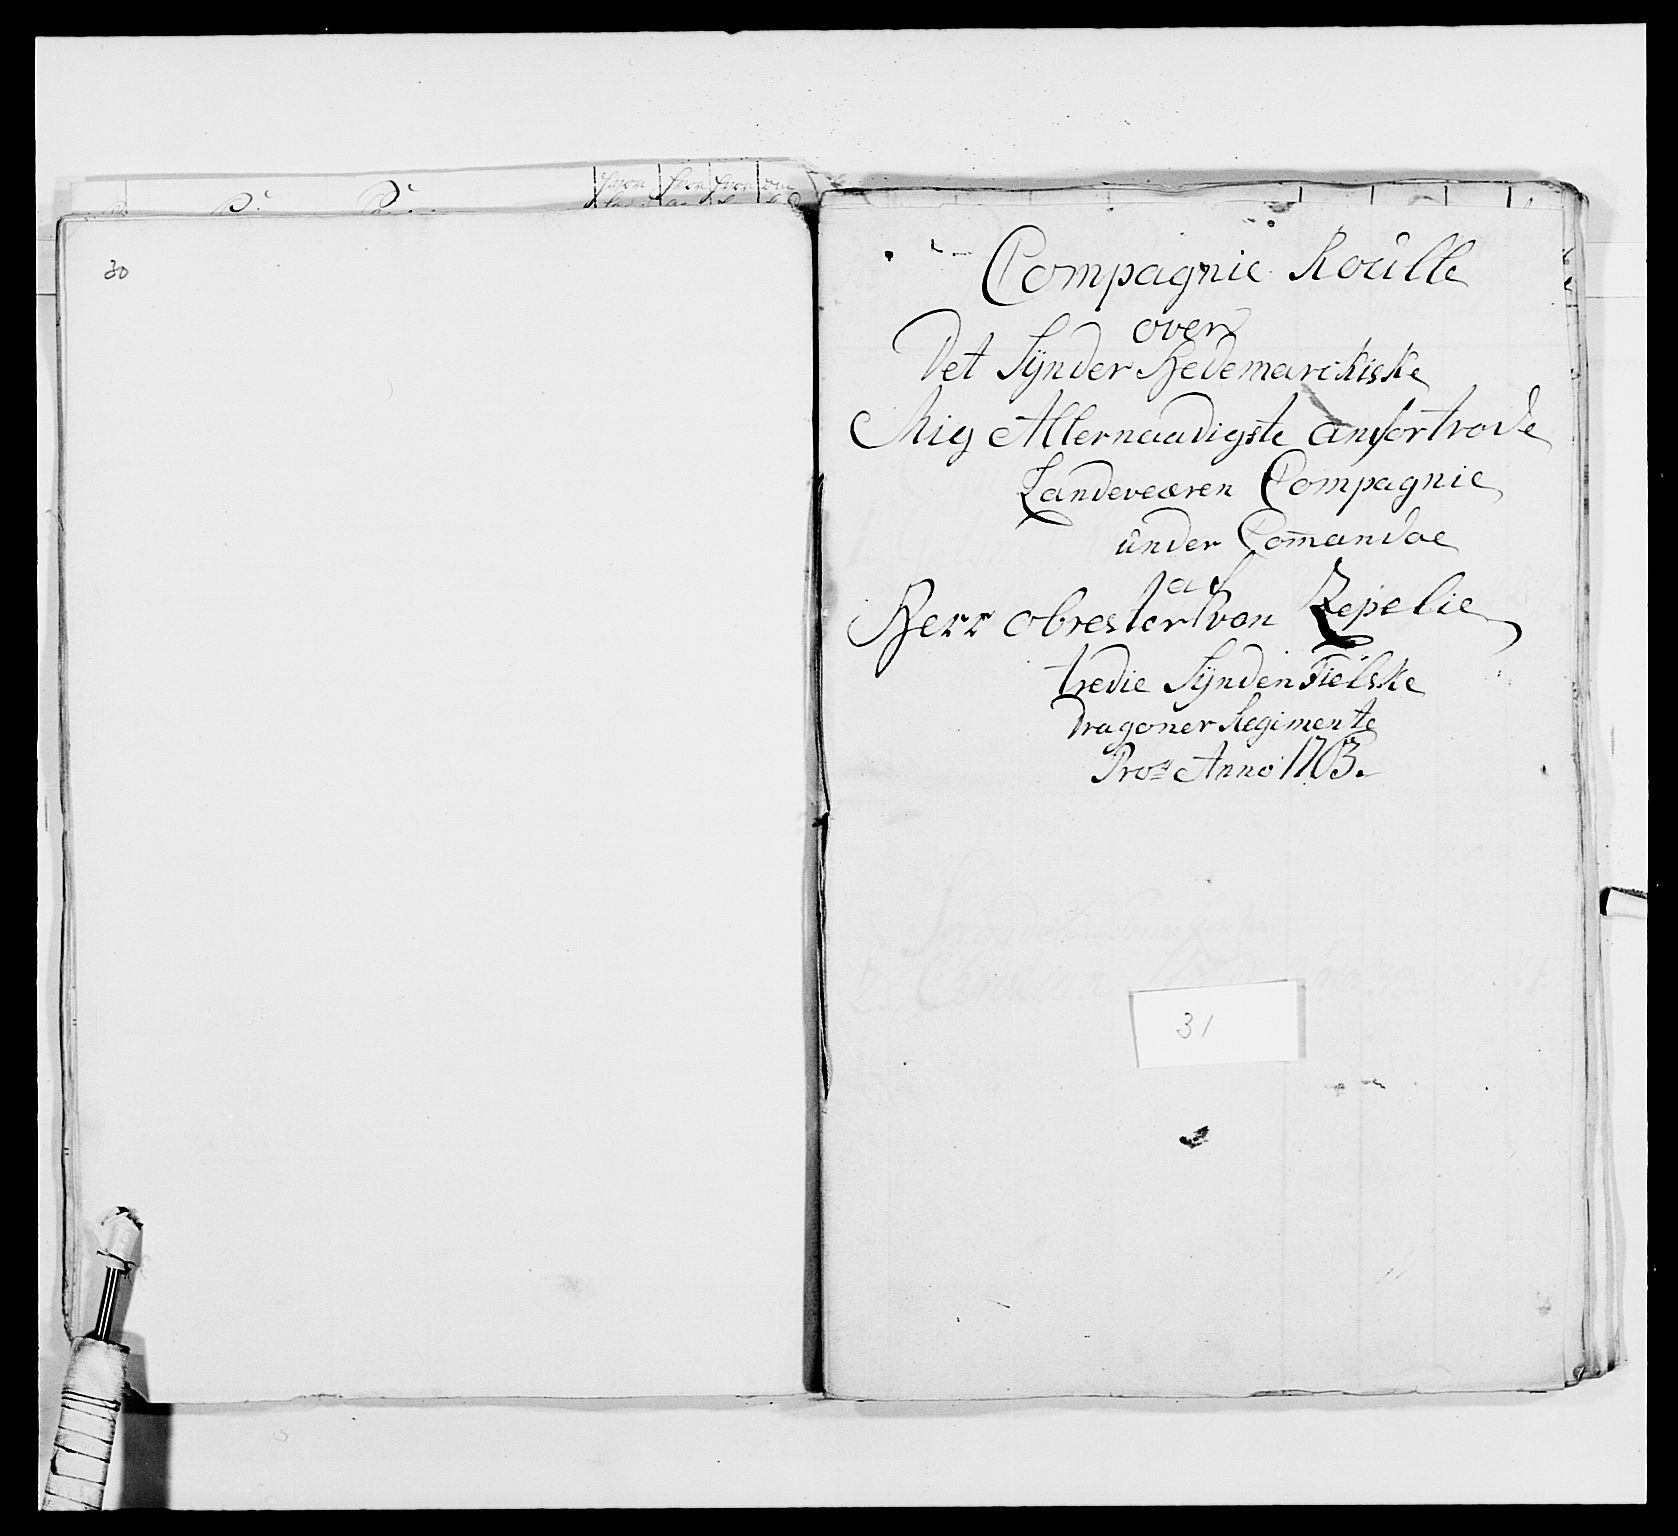 30
Compagnie Roülle
over
Det Sÿnder Hedemarckiske
Mig Allernaadigste anfortrode
Landeværen Compagnie
ünder Com̄andoe
af
Herr obrester von Zepelie
tredie Sÿnden Fielske
Dragoner Regimente
Pro Anno 1763.
31